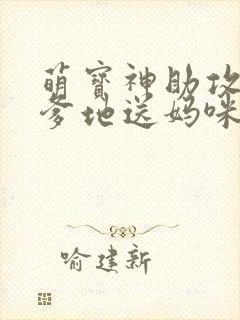 萌宝神助攻
爹地送妈咪
喻建新